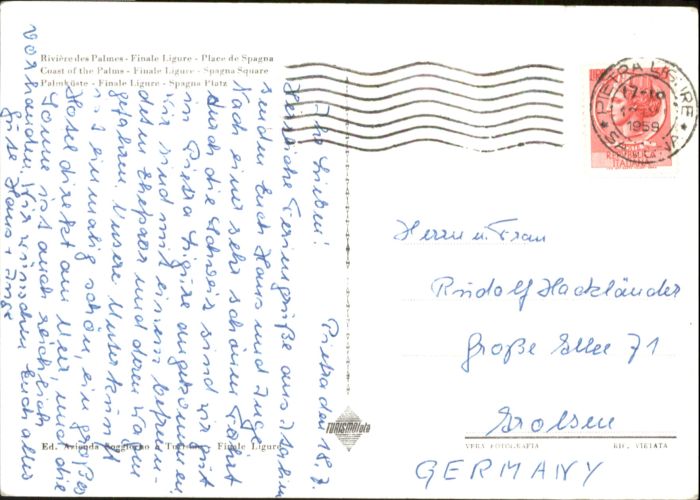 Rivière des Palmes - Finale Ligure - Place de Spagna
Coast of the Palms - Finale Ligure - Spagna Square
Palmküste - Finale Ligure - Spagna Platz
Pietra den 18.7.
Ihr Lieben!
Herzliche Feriengrüße aus Italien
senden Euch Hans und Inge
Nach einer sehr schönen Fahrt
durch die Schweiz sind wir gut
in Pietra Ligure angekommen.
Wir sind mit einem befreun-
deten Ehepaar und deren Wagen
gefahren. Unsere Unterkunft
ist einmalig schön, ein großes
Hotel direkt am Meer, und die
Sonne ist auch reichlich
vorhanden. Wir wünschen Euch alles
Gute Hans + Inge
PIETRA LIGURE
17-18
1959
SAVONA
REPUBBLICA
ITALIANA
Herrn u. Frau
Rudolf Hackländer
Große Allee 71
Arolsen
GERMANY
TURISMOfoto
Ed. Azienda Soggiorno e Turismo - Finale Ligure
VERA FOTOGRAFIA
RIP. VIETATA